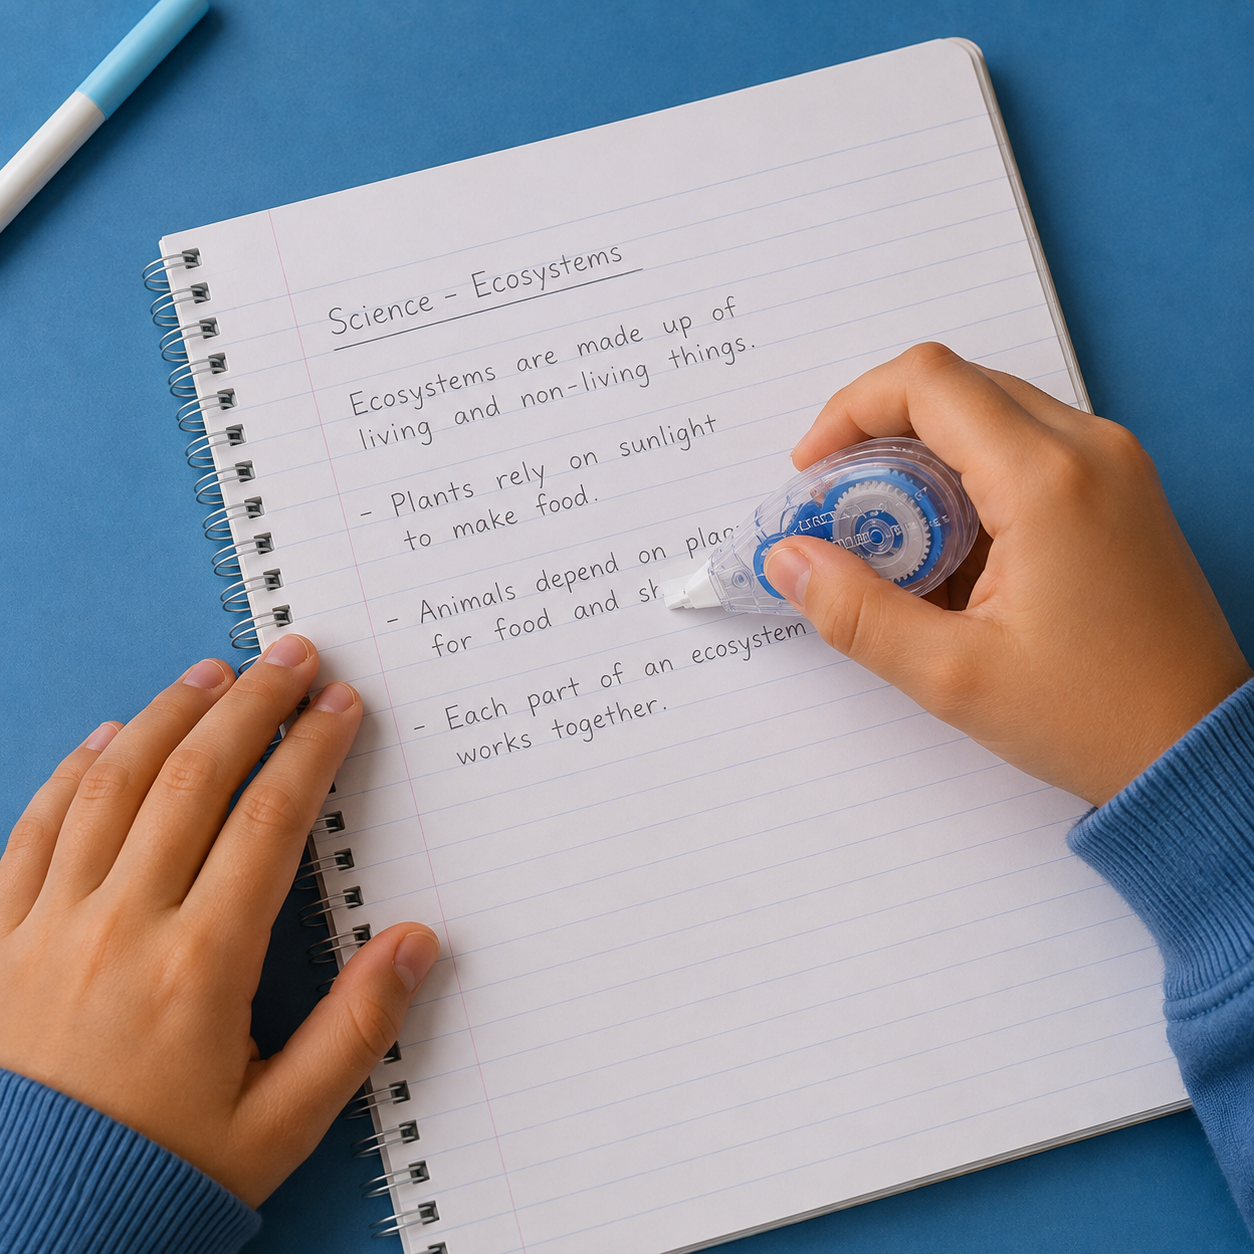 Science - Ecosystems
Ecosystems are made up of
living and non-living things.
- Plants rely on sunlight
to make food.
- Animals depend on
for food and
- Each part of an ecosystem
works together.